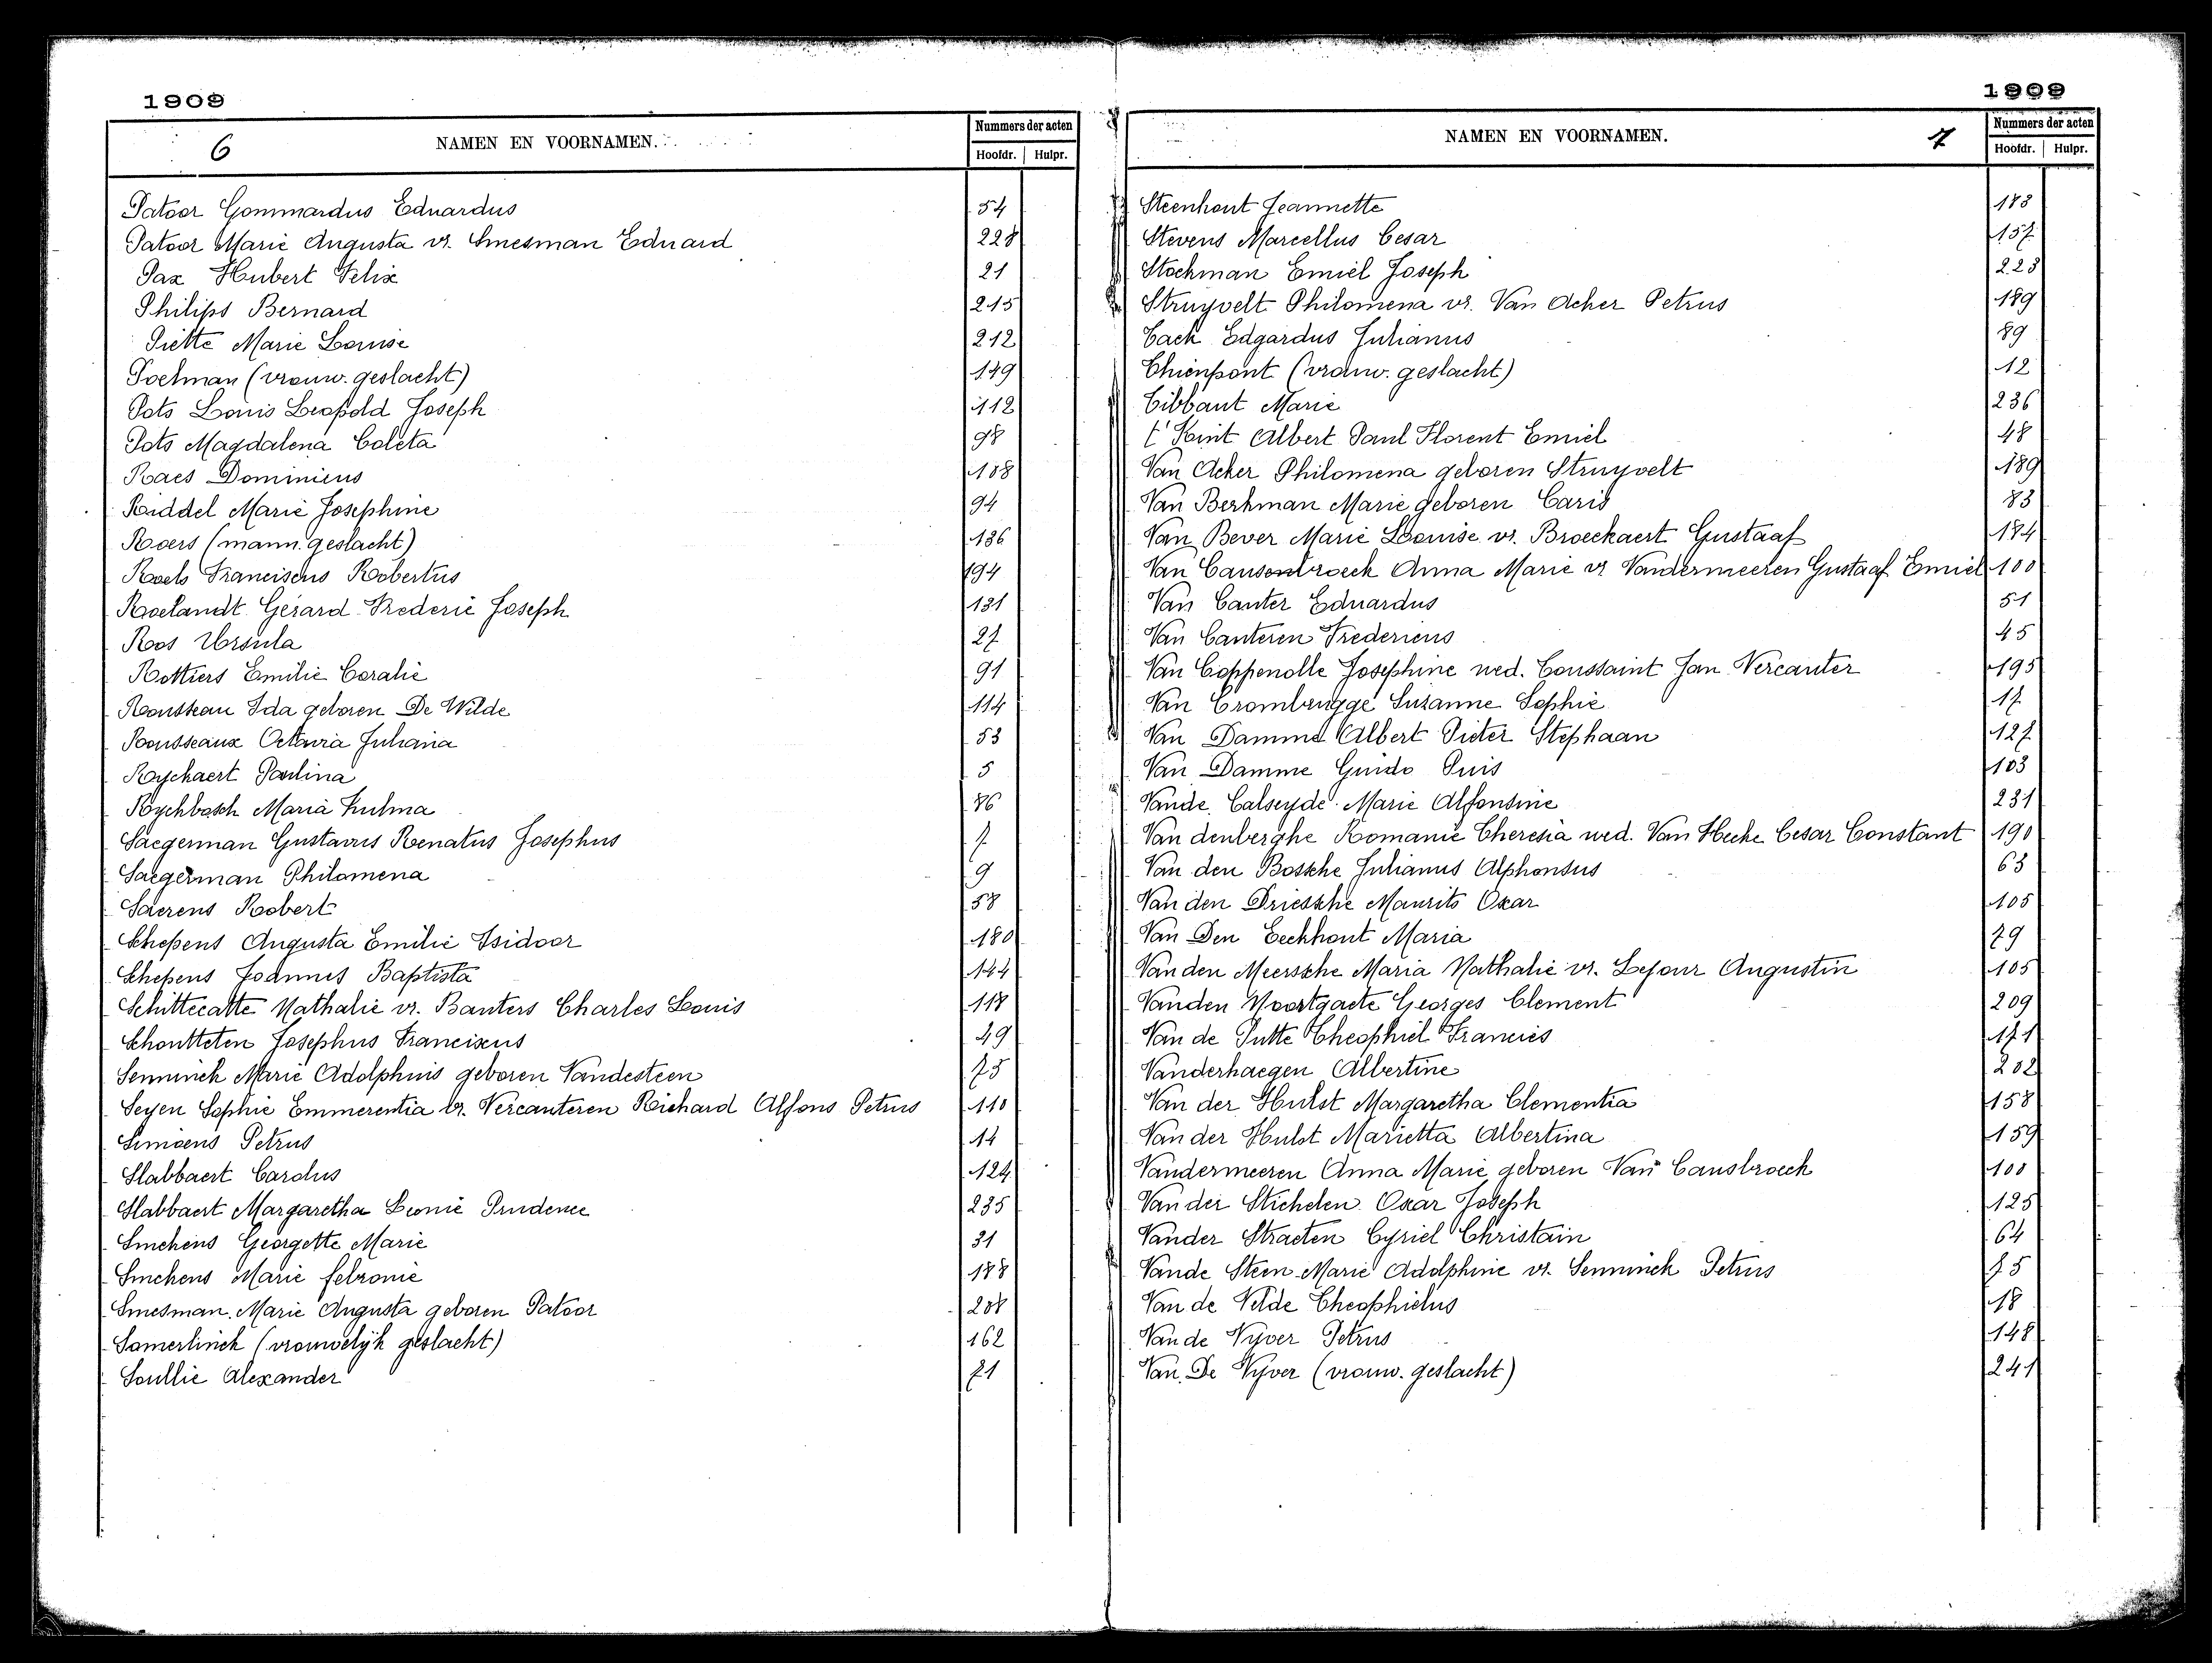 1909
6 NAMEN EN VOORNAMEN. Nummers der acten
Hoofdr. Hulpr.
Patoor Gommardus Eduardus 54
Patoor Marie Augusta vr. Smesman Eduard 228
Pax Hubert Felix 21
Philips Bernard 215
Piette Marie Louise 212
Poelman (vrouw. geslacht) 149
Pots Louis Leopold Joseph 112
Pots Magdalena Coleta 98
Raes Dominicus 108
Riddel Marie Josephine 94
Roers (mann. geslacht) 136
Roels Franciscus Robertus 194
Roelandt Gérard Frederic Joseph 131
Roos Ursula 27
Rottiers Emilie Coralie 91
Rousseau Ida geboren De Wilde 114
Rousseaux Octavia Juliana 53
Ryckaert Paulina 5
Ryckbosch Maria Zulma 86
Saegerman Gustavus Renatus Josephus 7
Saegerman Philomena 9
Saerens Robert 58
Schepens Augusta Emilie Isidoor 180
Schepens Joannes Baptista 144
Schittecatte Nathalie vr. Banters Charles Louis 118
Schoutteten Josephus Franciscus 49
Senninck Marie Adolphnis geboren Vandesteen 75
Seyen Sophie Emmerentia vr. Vercauteren Richard Alfons Petrus 110
Simoens Petrus 14
Slabbaert Carolus 124
Slabbaert Margaretha Leonie Prudence 235
Smekens Georgette Marie 31
Smekens Marie felzonie 188
Smesman Marie Augusta geboren Patoor 208
Somerlinck (vrouwelijk geslacht) 162
Soullie Alexander 71
1909
NAMEN EN VOORNAMEN. 7 Nummers der acten
Hoofdr. Hulpr.
Steenhout Jeannette 183
Stevens Marcellus Cesar 157
Stockman Emiel Joseph 223
Struyvelt Philomena vr. Van Acker Petrus 189
Tack Edgardus Julianus 89
Thienpont (vrouw. geslacht) 12
Tibbaut Marie 236
t'Kint Albert Paul Florent Emiel 48
Van Acker Philomena geboren Struyvelt 189
Van Berkman Marie geboren Caris 83
Van Bever Marie Louise vr. Broeckaert Gustaaf 184
Van Causenbroeck Anna Marie vr Vandermeeren Gustaaf Emiel 100
Van Canter Eduardus 51
Van Canteren Fredericus 45
Van Coppenolle Josephine wed. Toussaint Jan Vercauter 195
Van Crombrugge Suzanne Sophie 17
Van Damme Albert Pieter Stephaan 127
Van Damme Guido Puis 103
Vande Calseyde Marie Alfonsine 231
Van denberghe Romanie Theresia wed. Van Hecke Cesar Constant 190
Van den Bossche Julianus Alphonsus 63
Van den Driessche Maurits Oscar 105
Van Den Eeckhout Maria 79
Van den Meerssche Maria Nathalie vr. Lejour Augustin 105
Vanden Noortgaete Georges Clement 209
Van de Putte Theophiel Francies 171
Vanderhaegen Albertine 202
Van der Hulst Margaretha Clementia 158
Van der Hulst Marietta Albertina 159
Vandermeeren Anna Marie geboren Van Causbroeck 100
Van der Stichelen Oscar Joseph 125
Vander Straeten Cyriel Christain 64
Vande Steen Marie Adolphine vr. Senninck Petrus 75
Van de Velde Theophielus 18
Van de Vyver Petrus 148
Van De Vyver (vrouw. geslacht) 241